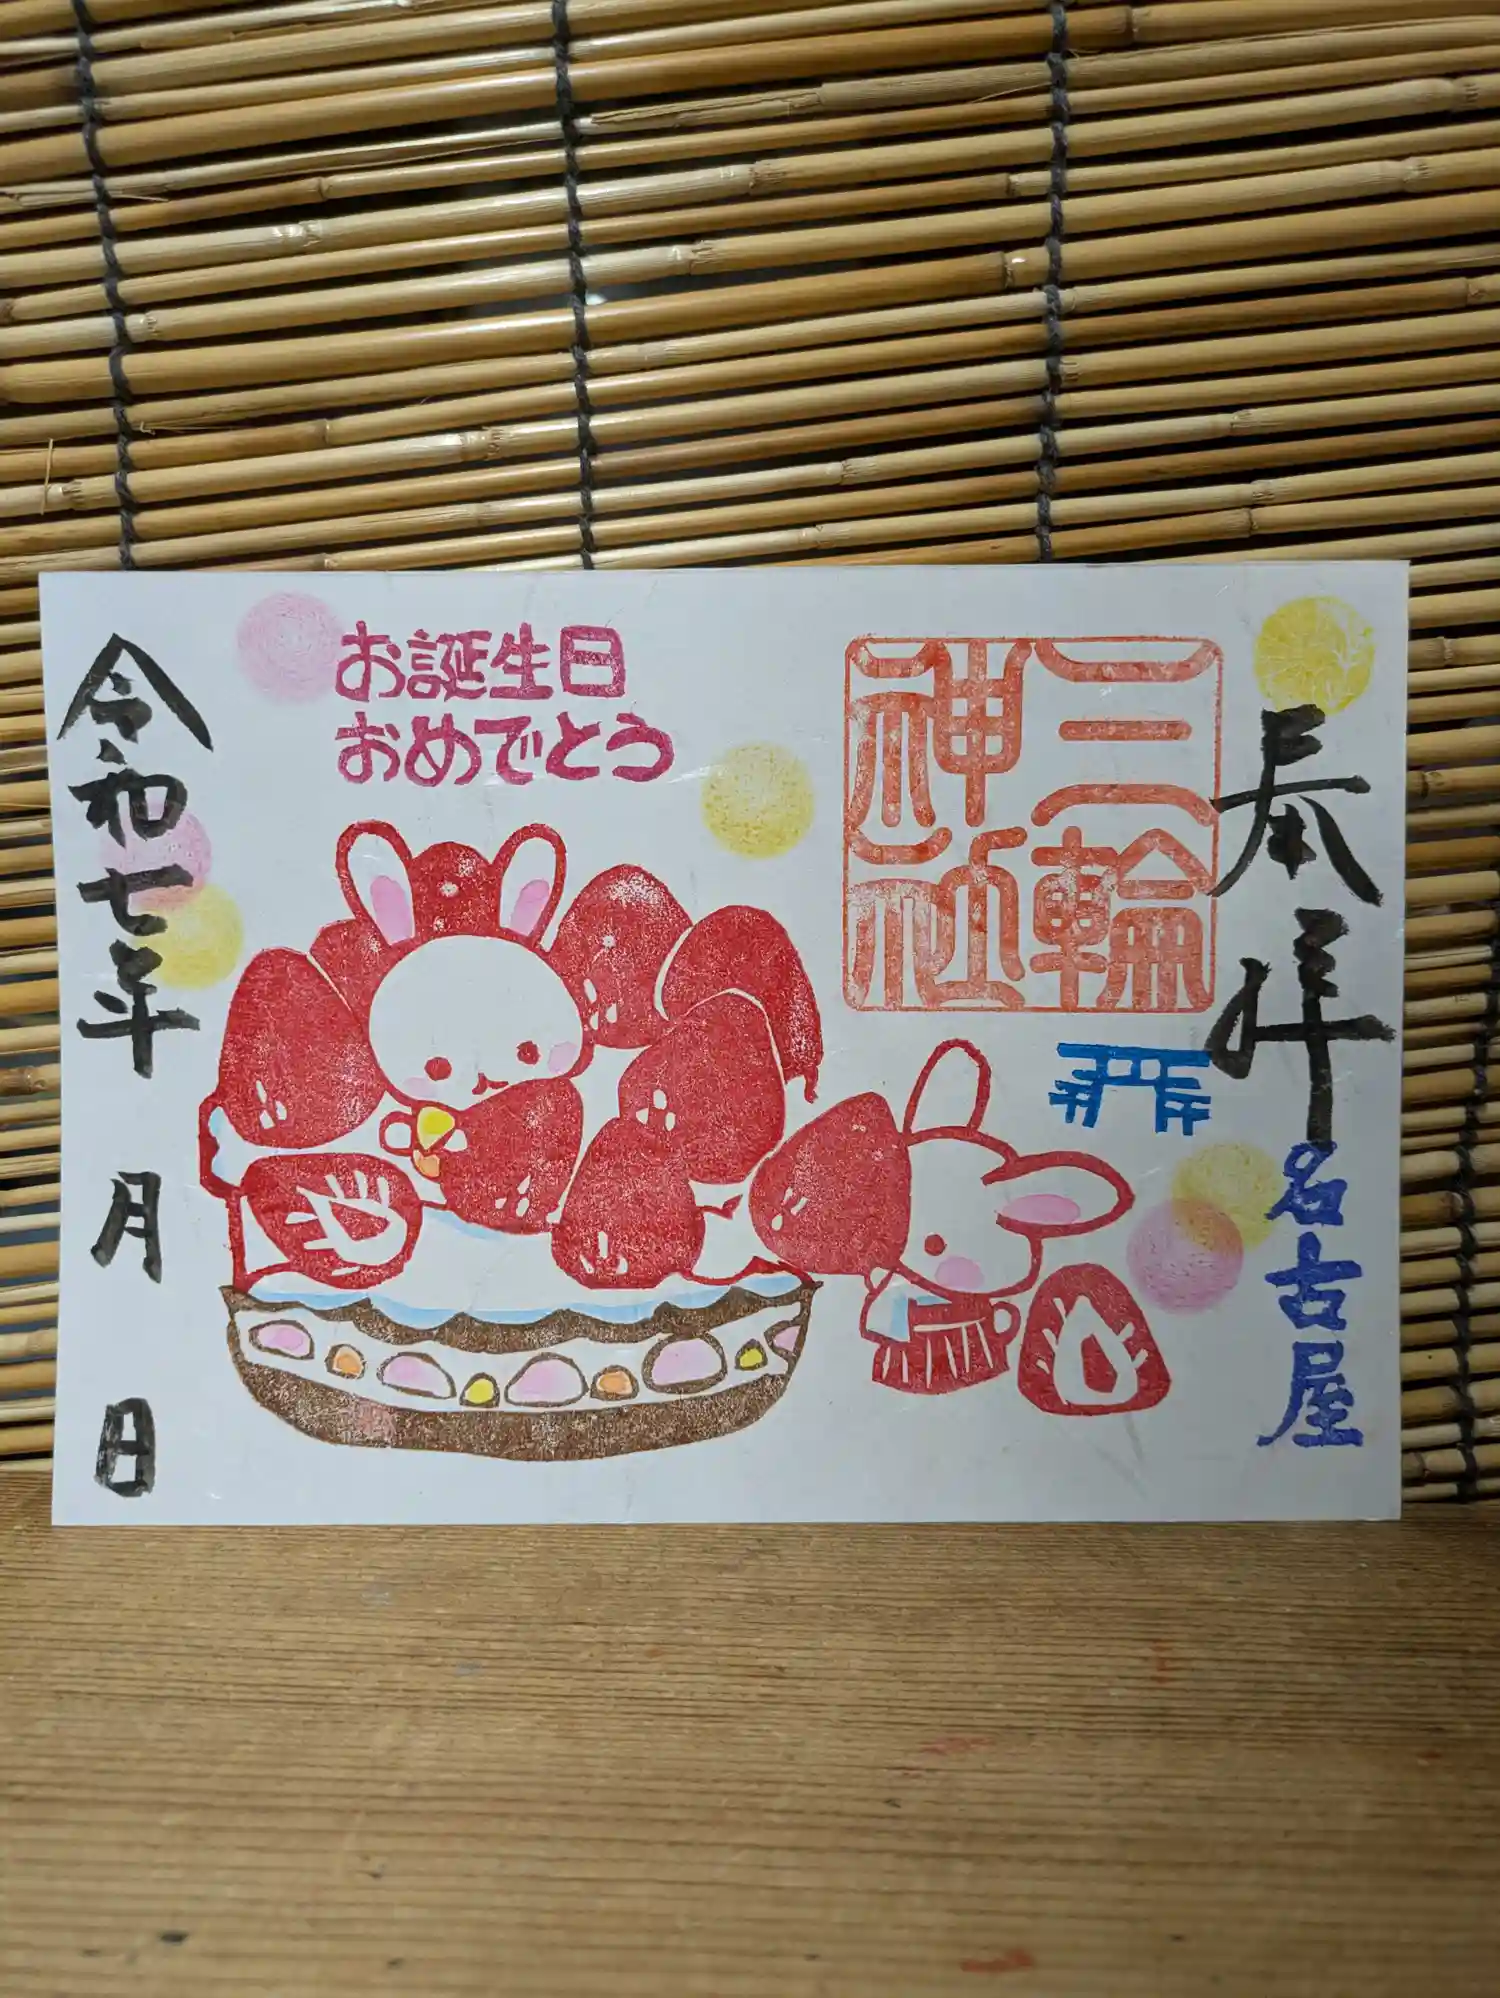 奉拝
名古屋
三輪
神社
お誕生日
おめでとう
令和七年 月 日